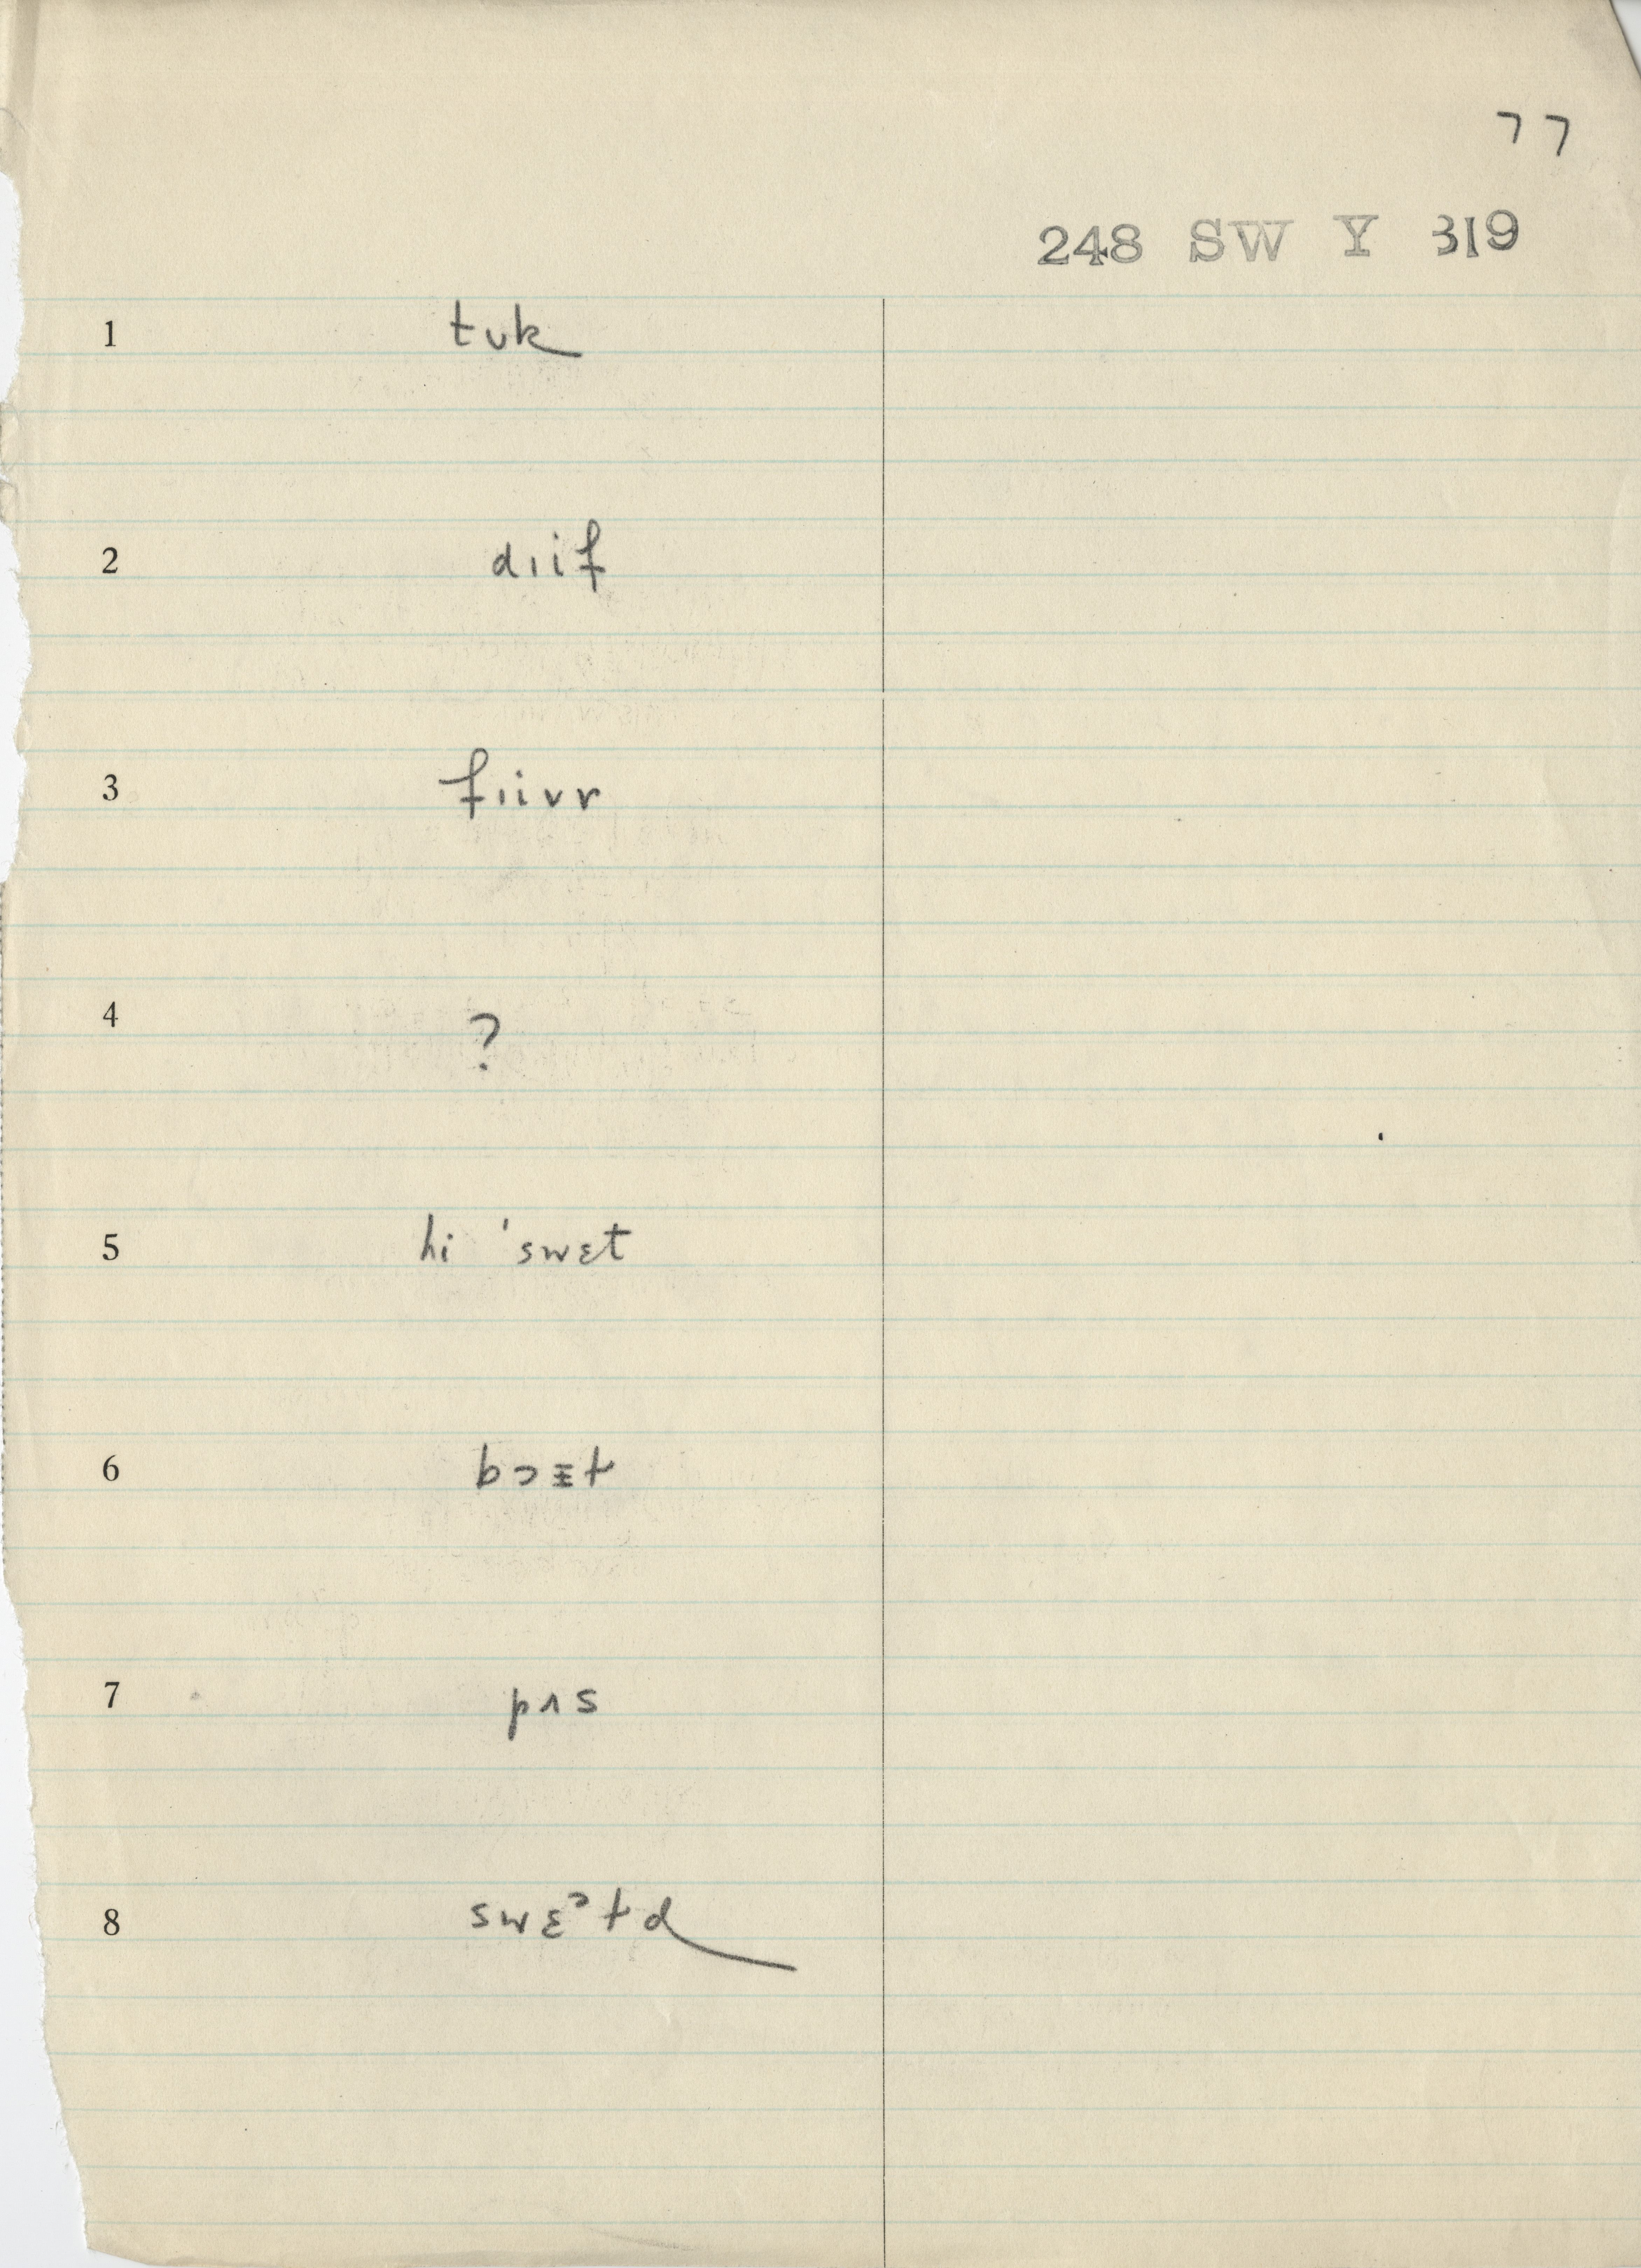 77
248 SW Y 319
1 tʊk
2 dɪif
3 fɪivr
4 ?
5 hi ˈswɛt
6 bɔɪt
7 pʌs
8 swɛᵊtd